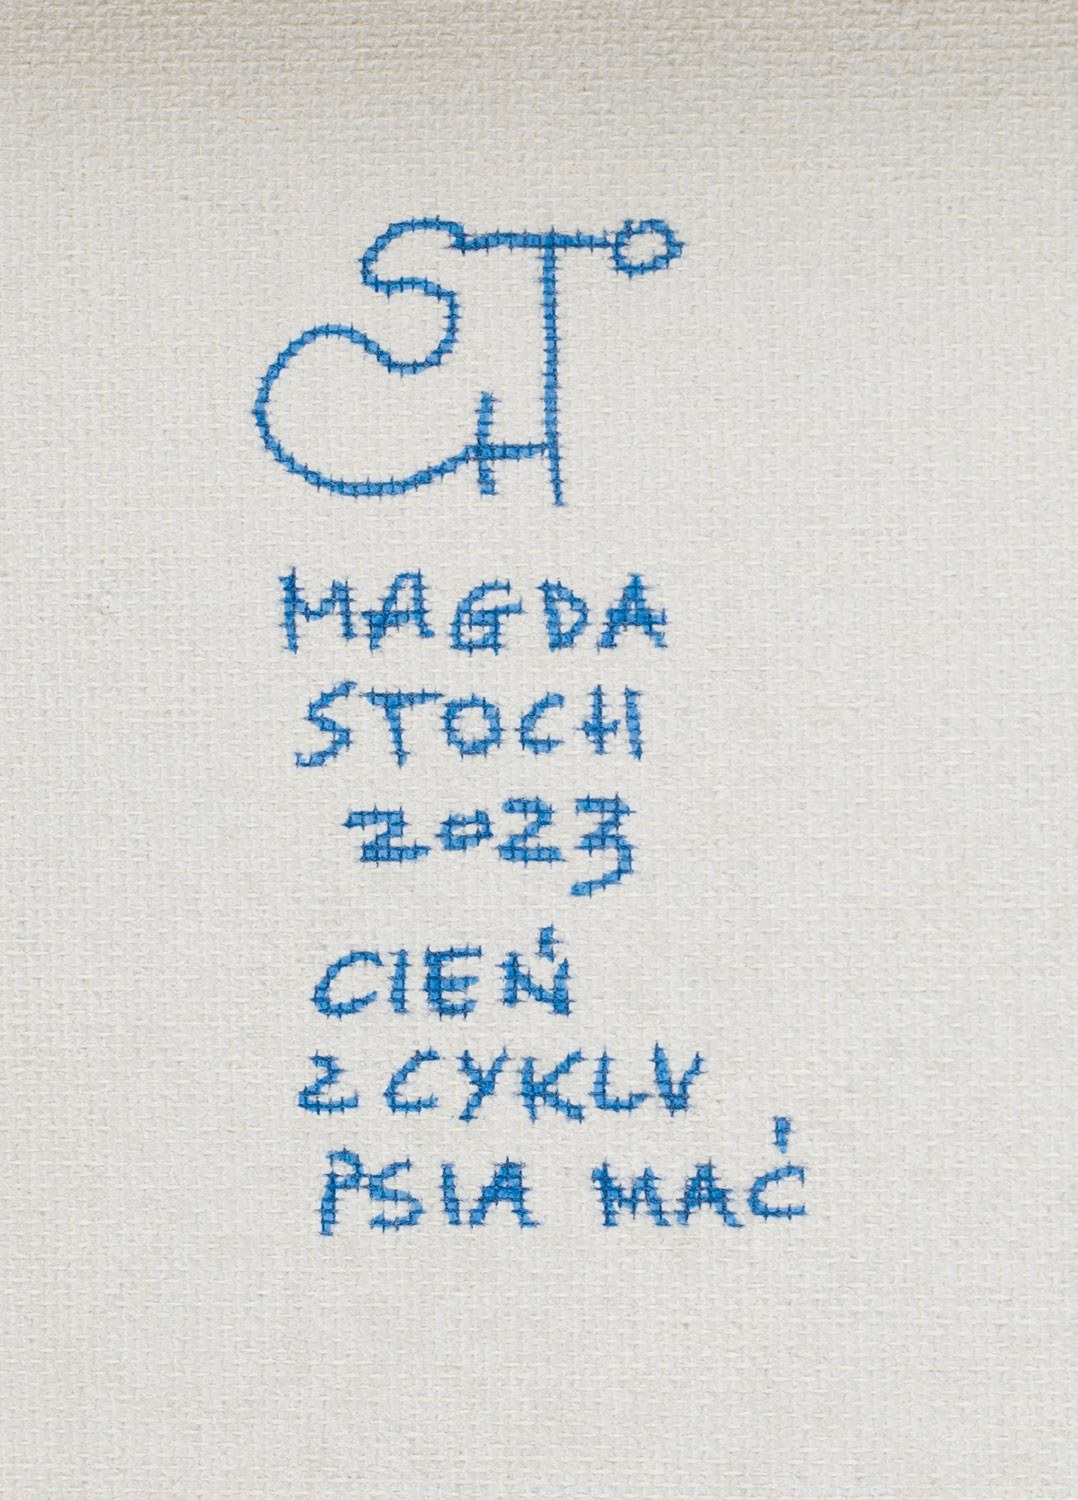 MAGDA
STOCH
2023
CIEŃ
Z CYKLU
PSIA MAĆ